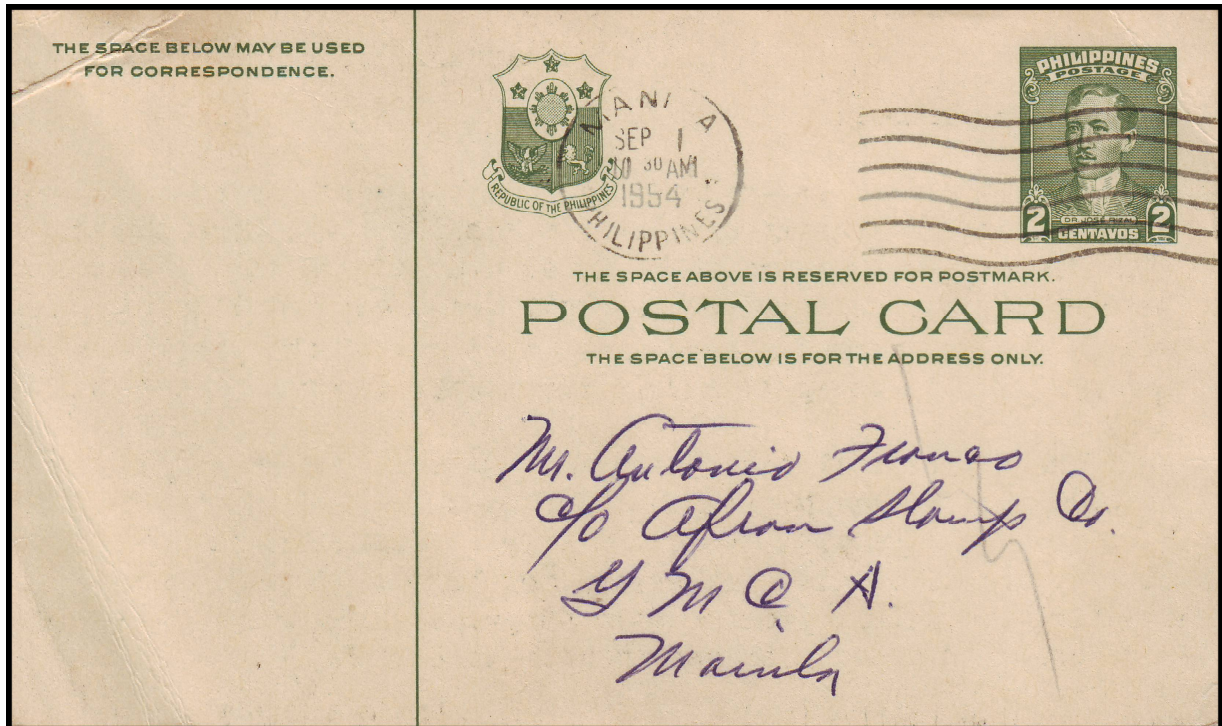 THE SPACE BELOW MAY BE USED
FOR CORRESPONDENCE.
REPUBLIC OF THE PHILIPPINES
MANI A
SEP 1
10 30 AM
1954
PHILIPPINES
PHILIPPINES
POSTAGE
2 2
DR. JOSE RIZAL
CENTAVOS
THE SPACE ABOVE IS RESERVED FOR POSTMARK.
POSTAL CARD
THE SPACE BELOW IS FOR THE ADDRESS ONLY.
Mr. Antonio Franco
c/o Afran Stamp Co.
Y M C A.
Manila